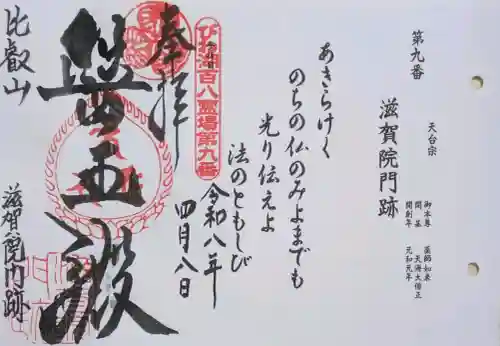 第九番
天台宗
滋賀院門跡
御本尊 薬師如来
開基 天海大僧正
開創年 元和元年
あきらけく
のちの仏のみよまでも
光り伝えよ
法のともしび
びわ湖百八霊場第九番
奉拝
令和八年
四月八日
比叡山
滋賀院門跡